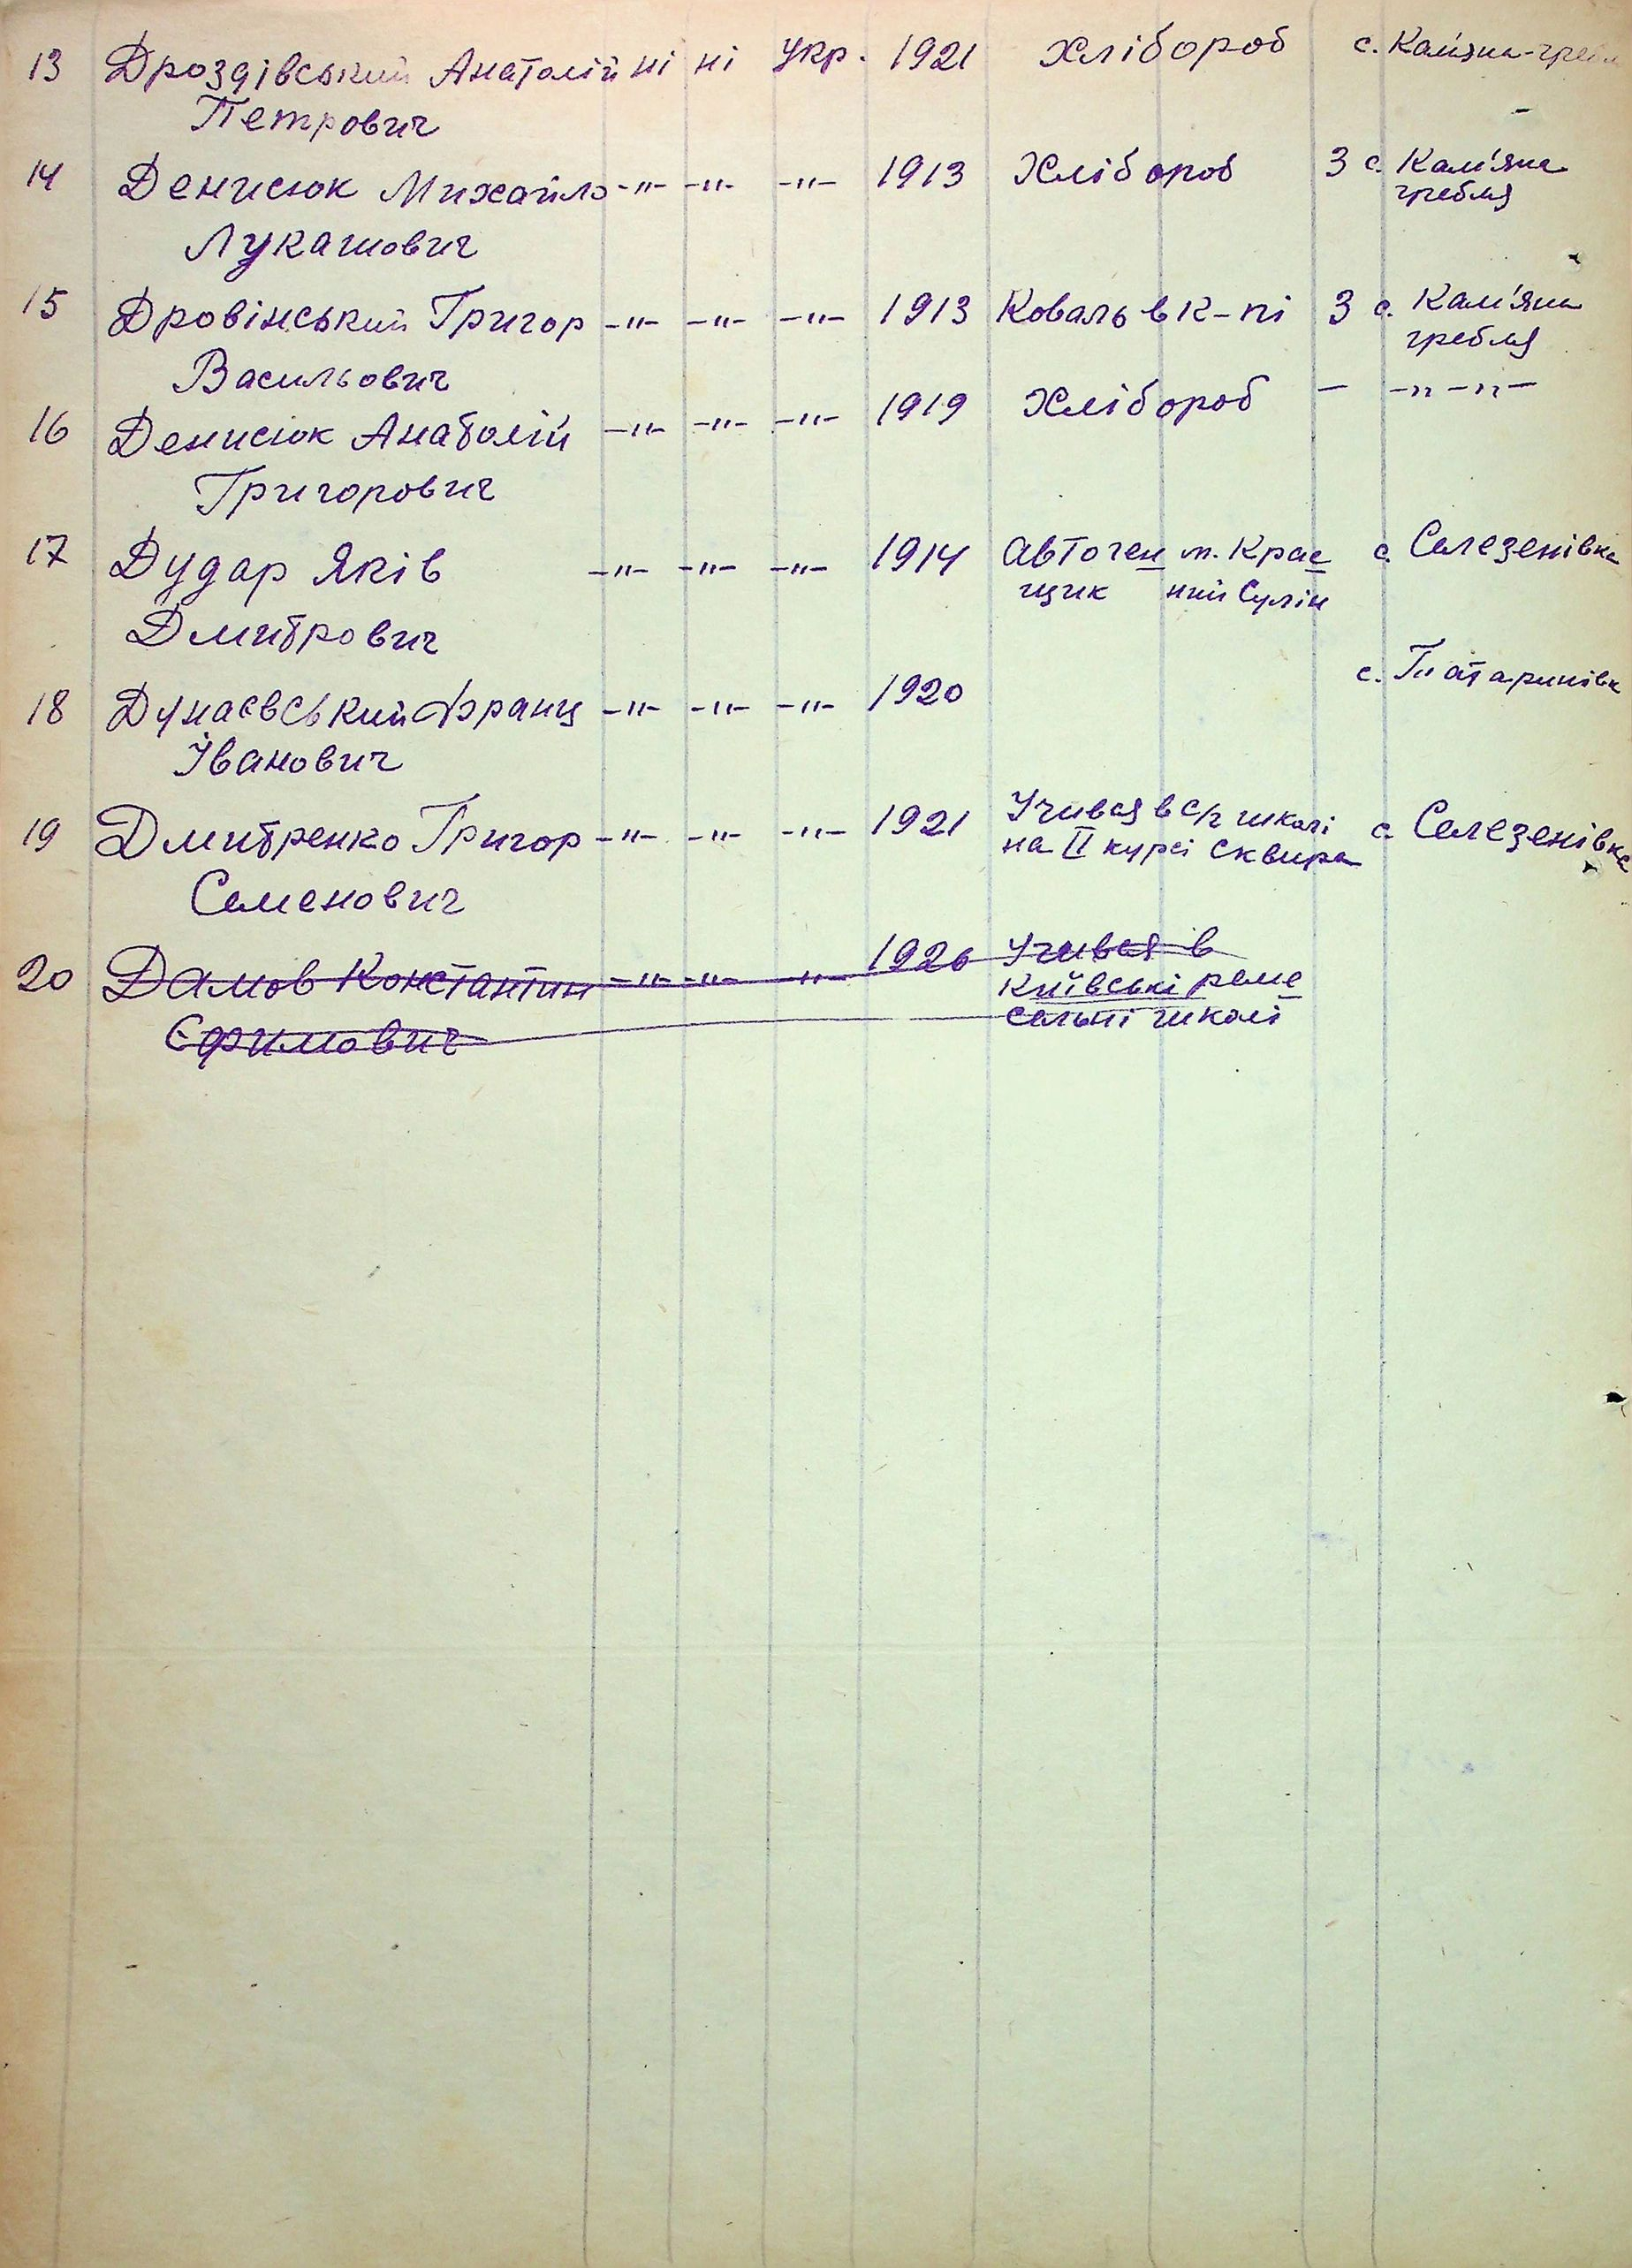 13 Дроздівський Анатолій ні ні Укр. 1921 Хлібороб с. Кам'яна-гребл
Петрович
14 Денисюк Михайло -"- -"- -"- 1913 Хлібороб 3 с. Кам'яна
гребля
Лукашович
15 Дровінський Григор -"- -"- -"- 1913 Коваль в К-пі 3 с. Кам'яна
гребля
Васильович
16 Денисюк Анатолій -"- -"- -"- 1919 Хлібороб - -"-"-
Григорович
17 Дудар Яків -"- -"- -"- 1914 Автоген м. Крас с. Селезенівка
щик ний Сулін
Дмитрович
18 Дунаєвський Франц -"- -"- -"- 1920 с. Татаринівк
Іванович
19 Дмитренко Григор -"- -"- -"- 1921 Учився в с/г школі с. Селезенівка
на II курсі Сквира
Семенович
20 Дамов Константин -"- -"- -"- 1926 Учився в
Київські реме
сельні школі
Єфимович